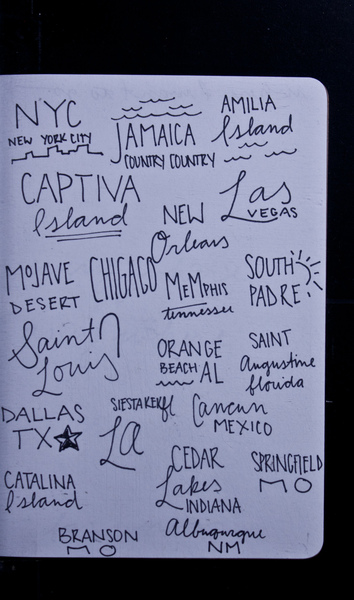 NYC
NEW YORK CITY
JAMAICA
COUNTRY COUNTRY
AMILIA
Island
CAPTIVA
Island
NEW
Orleans
Las
VEGAS
MOJAVE
DESERT
CHIGACO
MEMPHIS
tennessee
SOUTH
PADRE
Saint
Louis
ORANGE
BEACH AL
SAINT
Augustine
florida
DALLAS
TX
SIESTA KEY fl
LA
Cancun
MEXICO
CATALINA
Island
CEDAR
Lakes
INDIANA
SPRINGFIELD
MO
BRANSON
MO
Albuquerque
NM